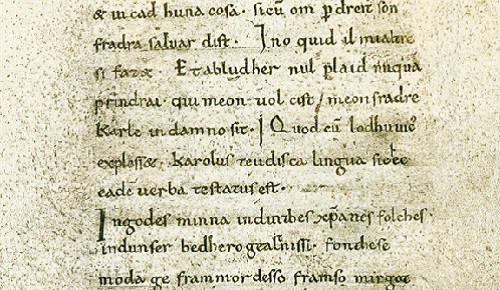 & in cad huna cosa. sicū om p dreit son
fradra saluar dist. Ino quid il mialtre
si faz&. Et abludher nul plaid nūquā
prindrai. qui meon uol cist / meonfradre
Karle in damno sit. Quod cū lodhuuic
expless&. Karolus teudisca lingua
eade uerba testatus est.
Ingodes minna induthes xp̄anes folches.
indunser bedhero gealtnissi. fonthese
moda ge frammordesso framso mirgot